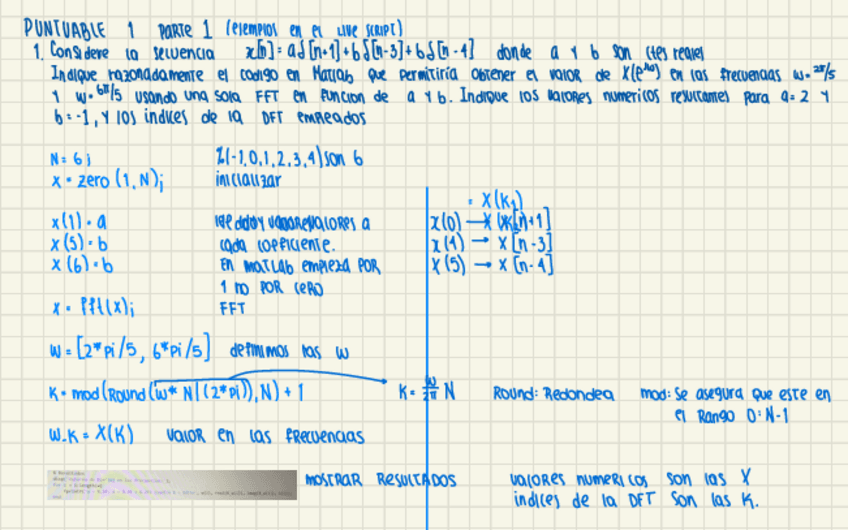 PUNTUABLE 1 PARTE 1 (ejemplos en el live script)
1. Considere la secuencia x[n] = aδ[n+1]+bδ[n-3]+bδ[n-4] donde a y b son ctes reales
Indique razonadamente el codigo en Matlab que permitiría obtener el valor de X(e^jω) en las frecuencias ω=2π/5
y ω=6π/5 usando una sola FFT en funcion de a y b. Indique los valores numericos resultantes para a=2 y
b=-1, y los indices de la DFT empleados
N=6; %(-1,0,1,2,3,4) son 6
x = zero (1,N); inicializar
x(1)=a
x(5)=b cada coeficiente.
x(6)=b En MATLAB empieza por
1 no por cero
x = fft(x); FFT
= X(K1)
x(0) → x[n+1]
x(4) → x[n-3]
x(5) → x[n-4]
W=[2*pi/5, 6*pi/5] definimos las w
K=mod(Round(w*N/(2*pi)),N)+1 K=w/2π N Round: Redondea mod: Se asegura que este en
el Rango 0:N-1
W_K = X(K) valor en las frecuencias
MOSTRAR RESULTADOS valores numericos son las X
indices de la DFT son las K.